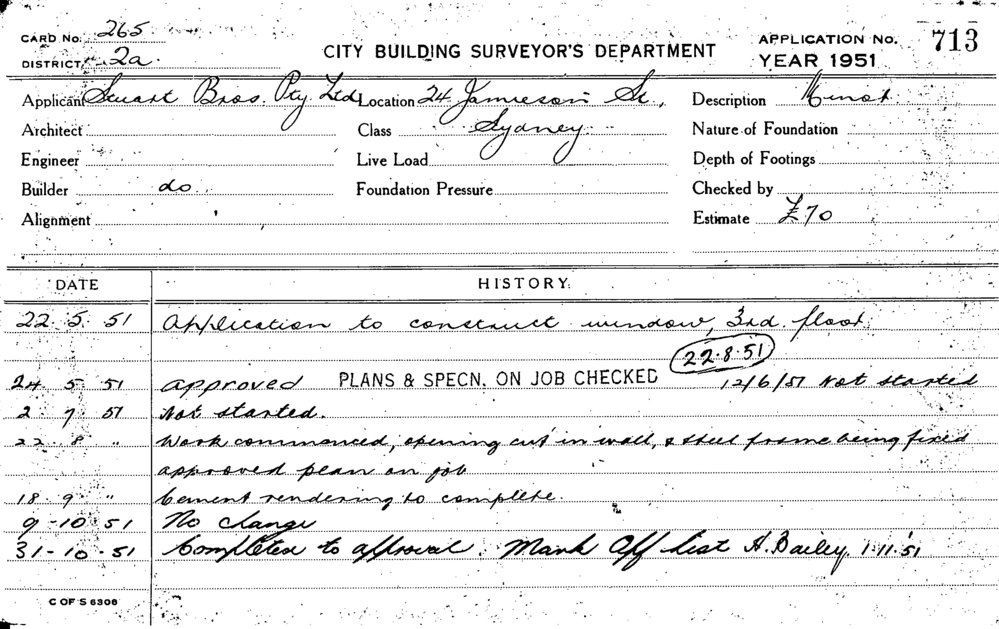 CARD No. 265
DISTRICT 2a.
CITY BUILDING SURVEYOR'S DEPARTMENT
APPLICATION No. 713
YEAR 1951
Applicant Stuart Bros. Pty Ltd Location 24 Jamieson St, Description Minor
Architect Class Sydney Nature of Foundation
Engineer Live Load Depth of Footings
Builder do Foundation Pressure Checked by
Alignment Estimate £70
DATE HISTORY
22 . 5 . 51 Application to construct window, 3rd floor
22.8.51
24 . 5 . 51 approved PLANS & SPECN. ON JOB CHECKED 12/6/51 Not started
2 . 7 . 51 Not started.
22 . 8 " Work commanced, opening cut in wall, & steel frame being fixed
approved plan on job
18 . 9 " Cement rendering to complete.
9 -10 . 51 No change
31 - 10 . 51 Completed to approval. Mark Off list H. Bailey 1.11.51
C OF S 6306